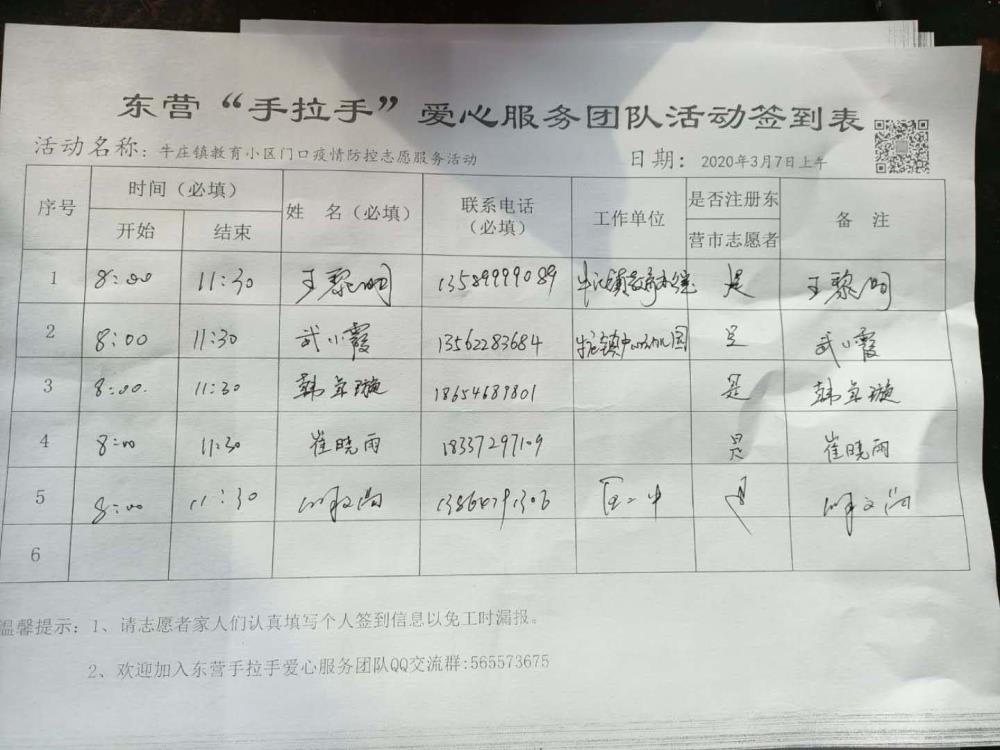 东营“手拉手”爱心服务团队活动签到表
活动名称：牛庄镇教育小区门口疫情防控志愿服务活动 日期：2020年3月7日上午
序号 时间（必填） 姓 名（必填） 联系电话（必填） 工作单位 是否注册东营市志愿者 备 注
开始 结束
1 8:00 11:30 王黎明 13589999089 是 王黎明
2 8:00 11:30 武小霞 13562283684 牛庄镇中心幼儿园 是 武小霞
3 8:00. 11:30 韩 璇 18654689801 是 韩 璇
4 8:00 11:30 崔晓雨 18337297109 是 崔晓雨
5 8:00 11:30 是
6
温馨提示：1、请志愿者家人们认真填写个人签到信息以免工时漏报。
2、欢迎加入东营手拉手爱心服务团队QQ交流群:565573675